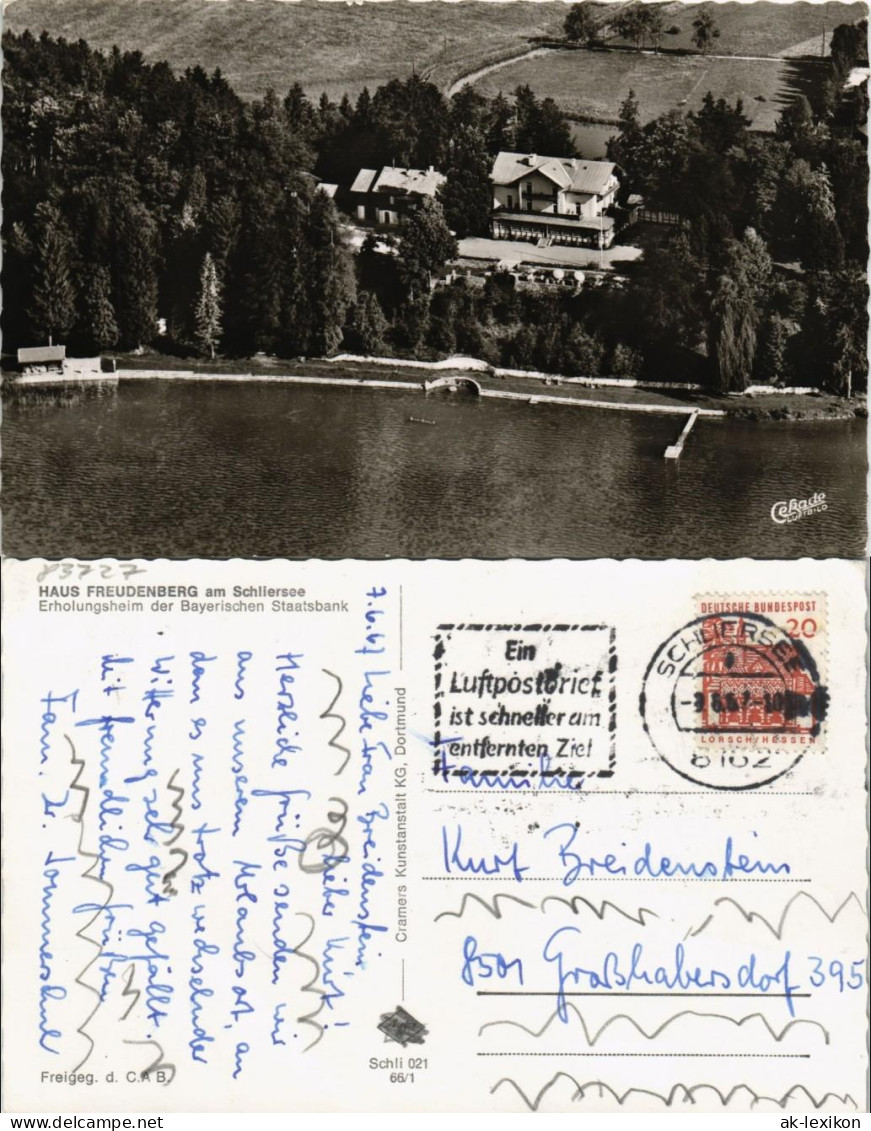 Cekade
LUFTBILD
83727
HAUS FREUDENBERG am Schliersee
Erholungsheim der Bayerischen Staatsbank
7.6.67
Liebe Frau Breidenstein
lieber Kurt!
Herzliche Grüße senden wir
aus unserem Urlaubsort, an
dem es uns trotz wechselnder
Witterung sehr gut gefällt.
Mit freundlichen Grüßen
Fam. Dr.
Freigeg. d. C.A.B.
Cramers Kunstanstalt KG, Dortmund
Schli 021
66/1
Ein
Luftpostbrief
ist schneller am
entfernten Ziel
SCHLIERSEE
8162
DEUTSCHE BUNDESPOST
20
LORSCH/HESSEN
Familie
Kurt Breidenstein
8501 Großhabersdorf 395
ak-lexikon